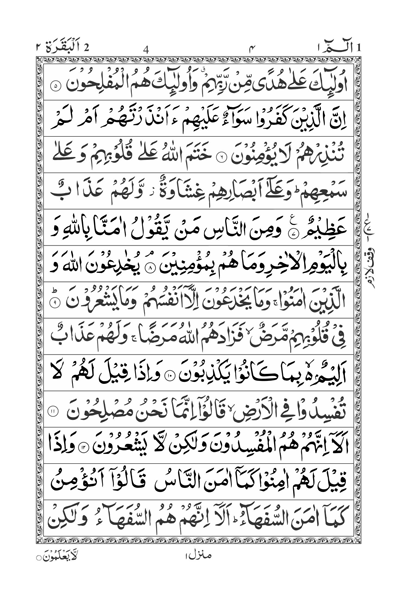 الٓمّٓ ١ 1 ٤ 4 اَلْبَقَرَة ٢ 2
اُولٰٓئِكَ عَلٰى هُدًى مِّنْ رَّبِّهِمْ ۙ وَاُولٰٓئِكَ هُمُ الْمُفْلِحُوْنَ ۝٥
اِنَّ الَّذِيْنَ كَفَرُوْا سَوَآءٌ عَلَيْهِمْ ءَاَنْذَرْتَهُمْ اَمْ لَمْ
تُنْذِرْهُمْ لَا يُؤْمِنُوْنَ ۝٦ خَتَمَ اللّٰهُ عَلٰى قُلُوْبِهِمْ وَعَلٰى
سَمْعِهِمْ ؕ وَعَلٰٓى اَبْصَارِهِمْ غِشَاوَةٌ ؗ وَّلَهُمْ عَذَابٌ
عَظِيْمٌ ۝٧ وَمِنَ النَّاسِ مَنْ يَّقُوْلُ اٰمَنَّا بِاللّٰهِ وَ
بِالْيَوْمِ الْاٰخِرِ وَمَا هُمْ بِمُؤْمِنِيْنَ ۝٨ يُخٰدِعُوْنَ اللّٰهَ وَ
الَّذِيْنَ اٰمَنُوْا ۚ وَمَا يَخْدَعُوْنَ اِلَّاۤ اَنْفُسَهُمْ وَمَا يَشْعُرُوْنَ ۝٩
فِيْ قُلُوْبِهِمْ مَّرَضٌ ۙ فَزَادَهُمُ اللّٰهُ مَرَضًا ۚ وَلَهُمْ عَذَابٌ
اَلِيْمٌ ۢ ۙ بِمَا كَانُوْا يَكْذِبُوْنَ ۝١٠ وَاِذَا قِيْلَ لَهُمْ لَا
تُفْسِدُوْا فِي الْاَرْضِ ۙ قَالُوْٓا اِنَّمَا نَحْنُ مُصْلِحُوْنَ ۝١١
اَلَاۤ اِنَّهُمْ هُمُ الْمُفْسِدُوْنَ وَلٰكِنْ لَّا يَشْعُرُوْنَ ۝١٢ وَاِذَا
قِيْلَ لَهُمْ اٰمِنُوْا كَمَاۤ اٰمَنَ النَّاسُ قَالُوْٓا اَنُؤْمِنُ
كَمَاۤ اٰمَنَ السُّفَهَآءُ ؕ اَلَاۤ اِنَّهُمْ هُمُ السُّفَهَآءُ وَلٰكِنْ
وقف لازم
منزل ١
لَّا يَعْلَمُوْنَ ۝